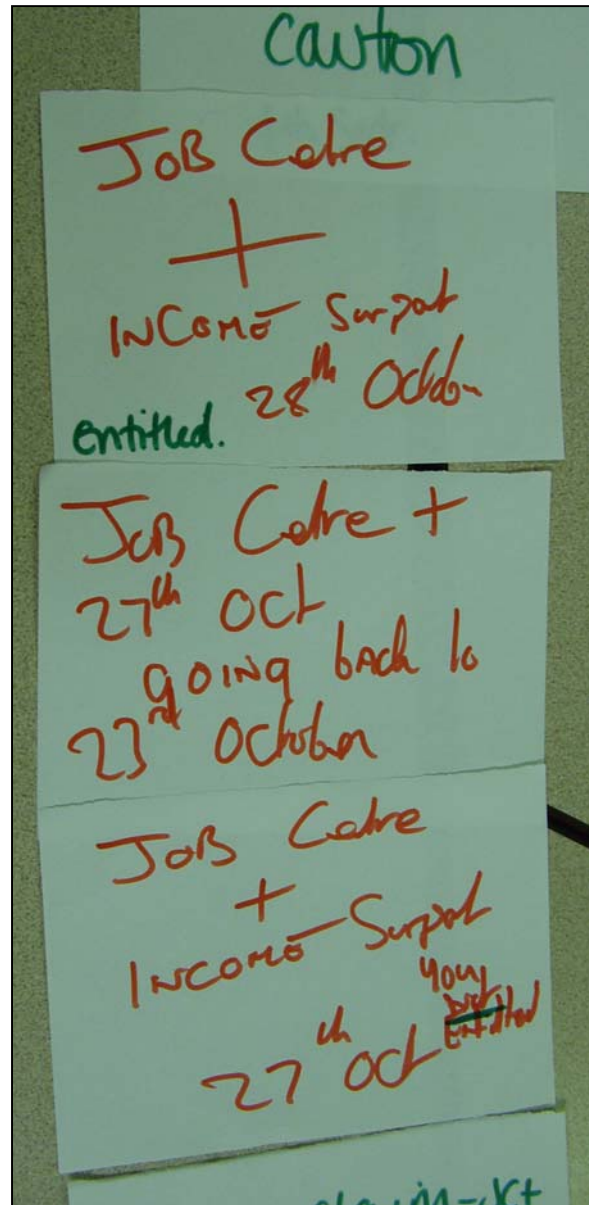 caution
JOB Cetre
+
INCOME Surpot
28th October
entitled.
JOB Cetre +
27th OCt
gOING back to
23rd October
JOB Cetre
+
INCOME Surpot
you
Entitled
27th Oct